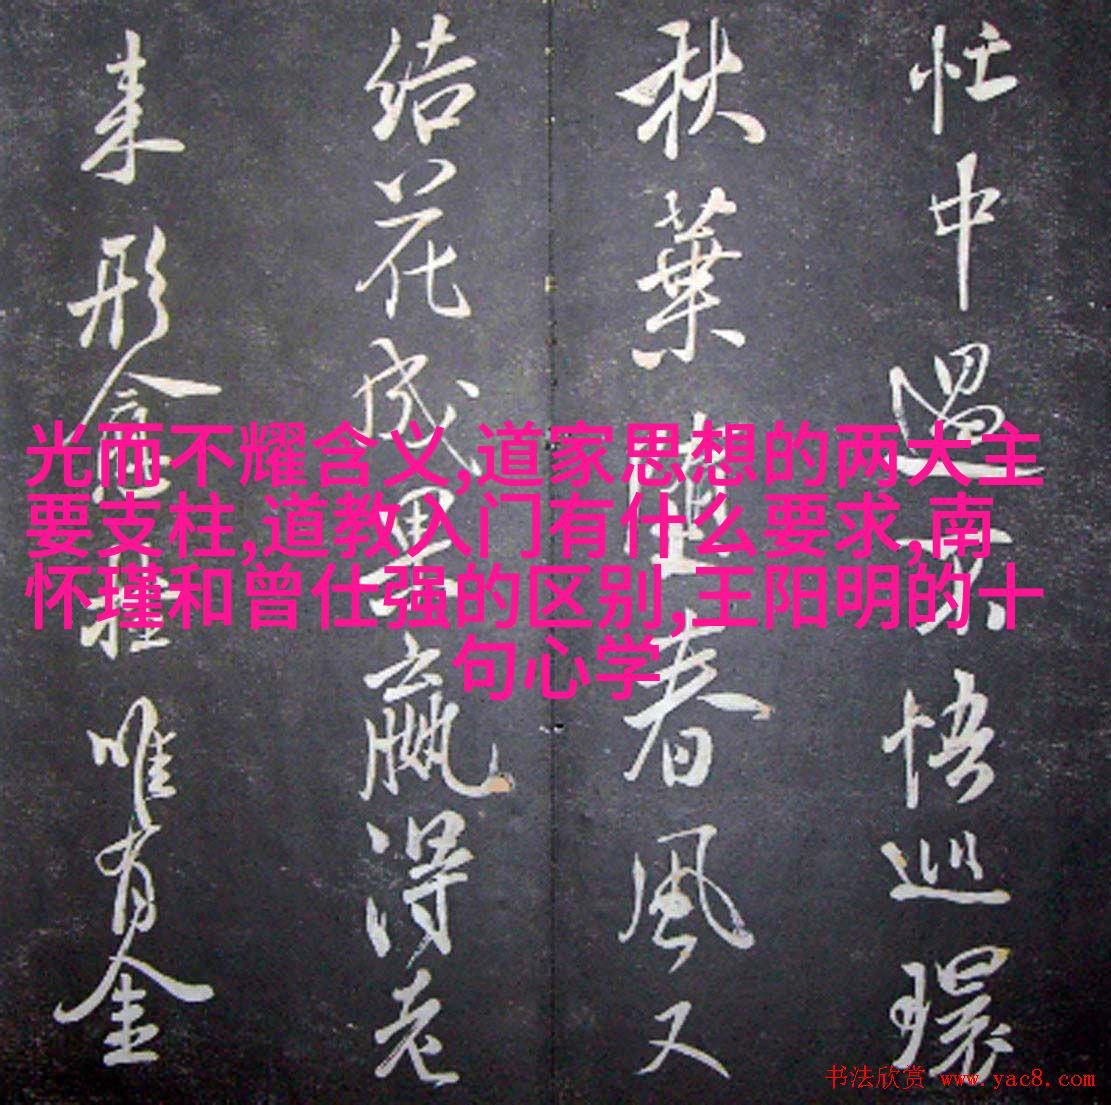 光而不耀含义,道家思想的两大主
要支柱,道教入门有什么要求,南
怀瑾和曾仕强的区别,王阳明的十
句心学
忙中遇不悟巡環
秋葉春風又
结花成赢得老
来形唯有金
书法欣赏 www.yac8.com